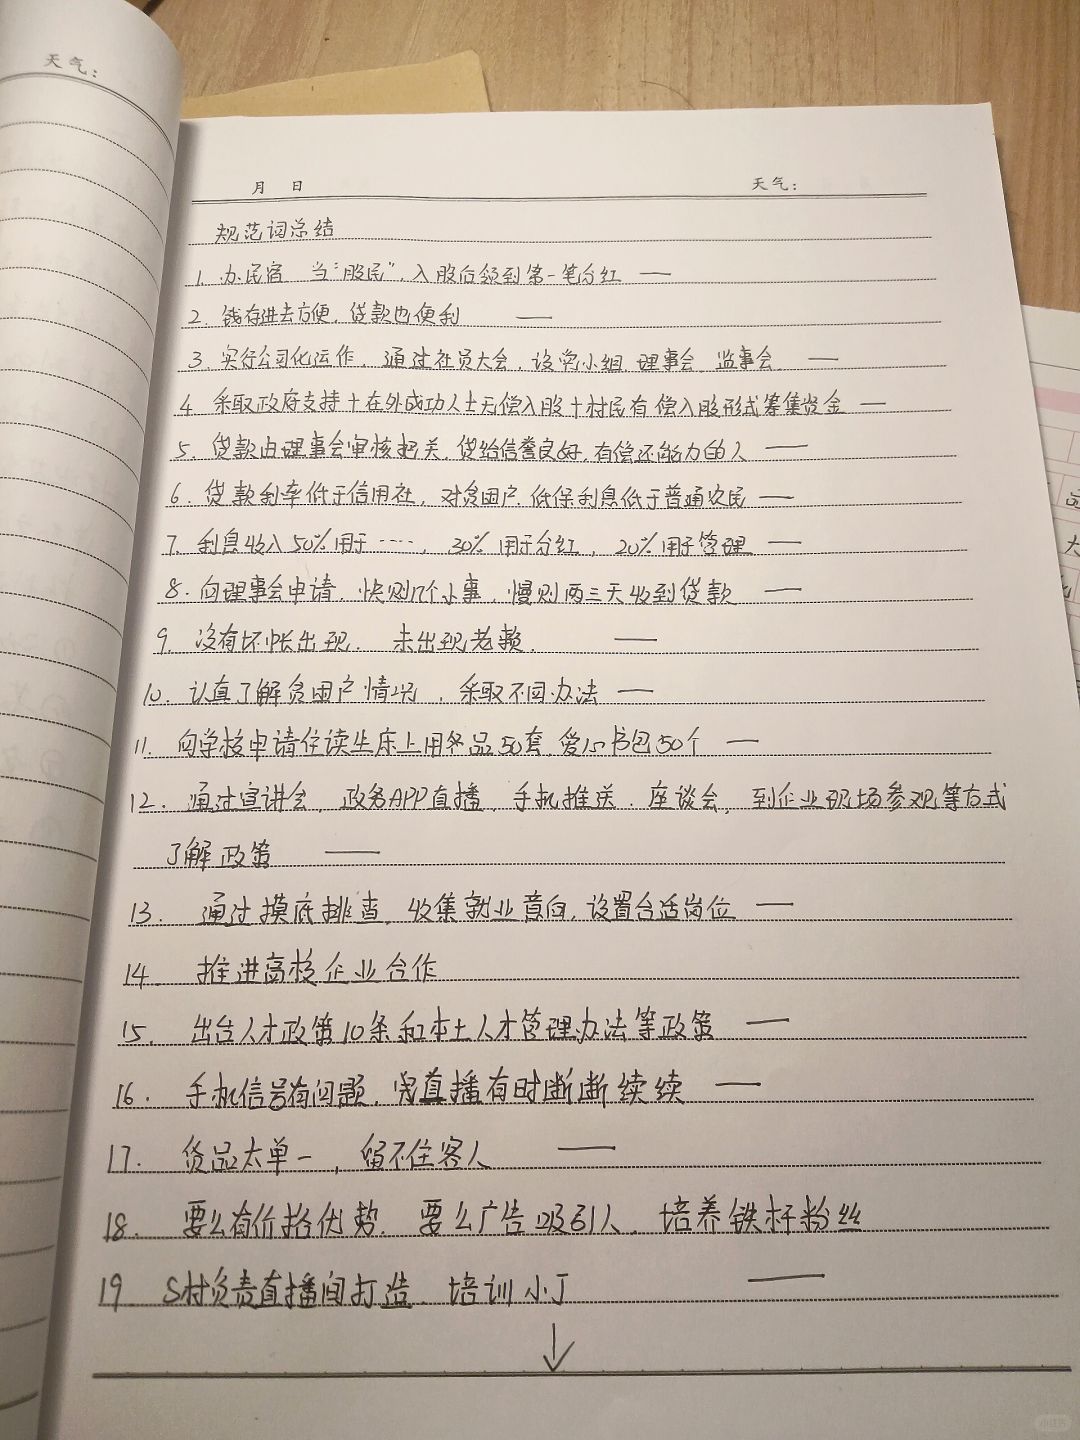 天气：
月 日 天气：
规范词总结
1. 办民宿 当“股民”，入股后领到第一笔分红 ——
2. 钱存进去方便，贷款也便利 ——
3. 实行公司化运作，通过社员大会，设党小组 理事会 监事会 ——
4. 采取政府支持+在外成功人士无偿入股+村民有偿入股形式筹集资金 ——
5. 贷款由理事会审核把关，贷给信誉良好，有偿还能力的人 ——
6. 贷款利率低于信用社，对贫困户 低保利息低于普通农民 ——
7. 利息收入50%用于……， 30%用于分红， 20%用于管理 ——
8. 向理事会申请，快则几个小事，慢则两三天收到贷款 ——
9. 没有坏帐出现， 未出现老赖. ——
10. 认真了解贫困户情况，采取不同办法 ——
11. 向学校申请住读生床上用品50套，爱心书包50个 ——
12. 通过宣讲会，政务APP直播，手机推送，座谈会，到企业现场参观等方式
了解政策 ——
13. 通过摸底排查，收集就业意向，设置合适岗位 ——
14. 推进高校企业合作
15. 出台人才政策10条和本土人才管理办法等政策 ——
16. 手机信号有问题，直播有时断断续续 ——
17. 货品太单一，留不住客人 ——
18. 要么有价格优势，要么广告吸引人，培养铁杆粉丝
19. S村负责直播间打造，培训小丁 ——
↓
小红书